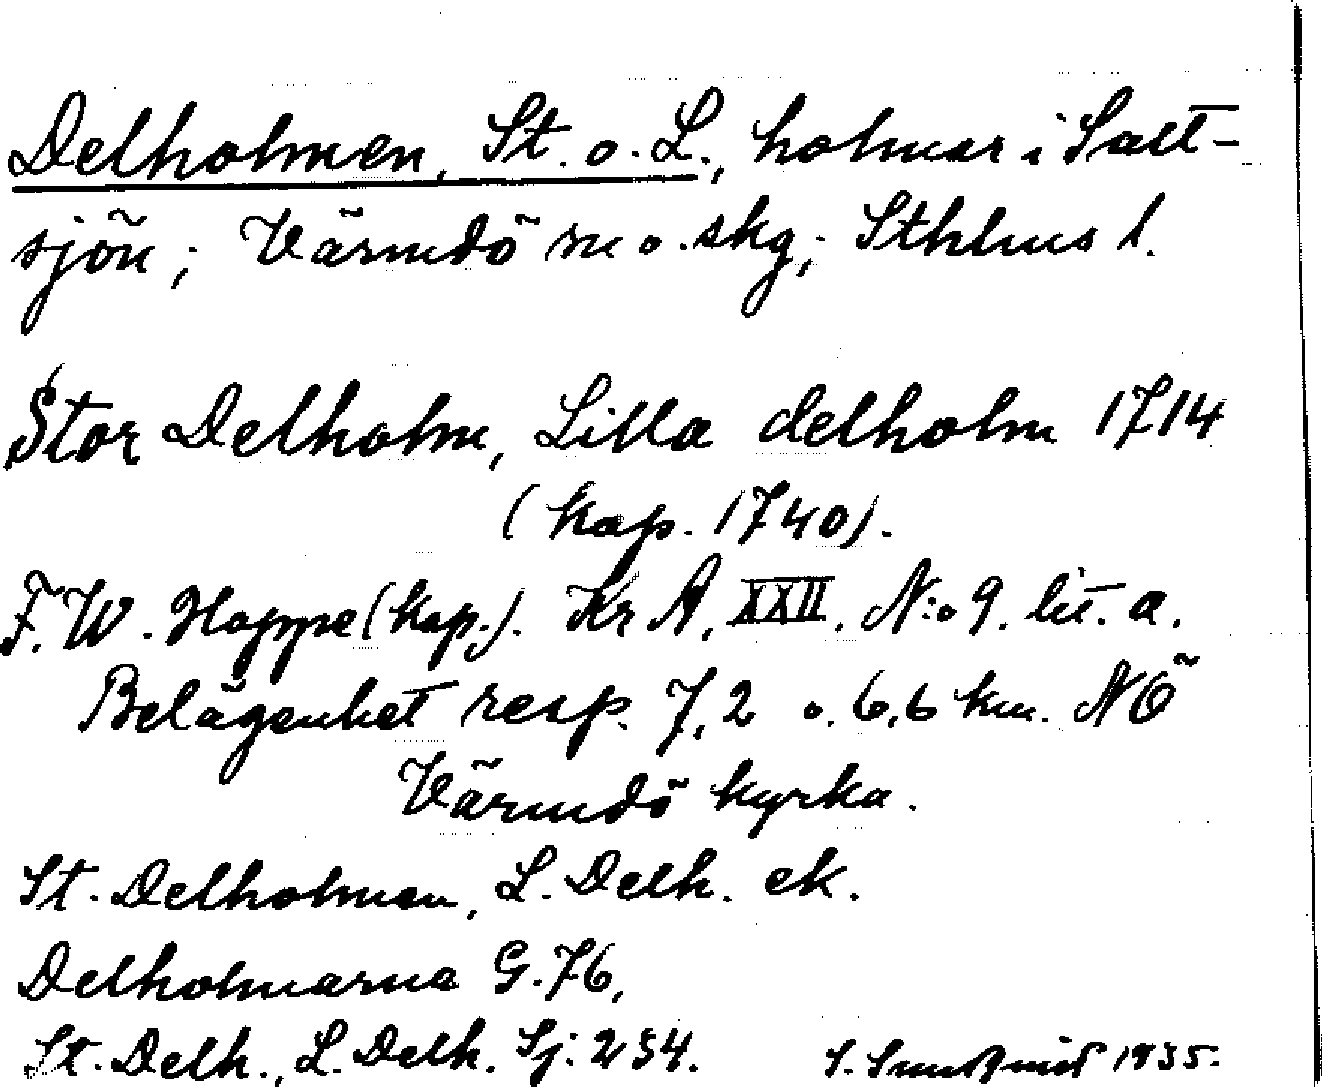 Delholmen, St. o. L., holmar i Salt-
sjön; Värmdö sn o. skg; Sthlms l.
Stor Delholm, Lilla delholm 1714
(kop. 1740).
F. W. Hoppe (kop.). Kr A, XXII. N:o 9. lit. a.
Belägenhet resp. 7,2 o. 6,6 km. NÖ
Värmdö kyrka.
St. Delholmen, L. Delh. ek.
Delholmarna G. 76,
St. Delh., L. Delh. Sj: 234.
1935.